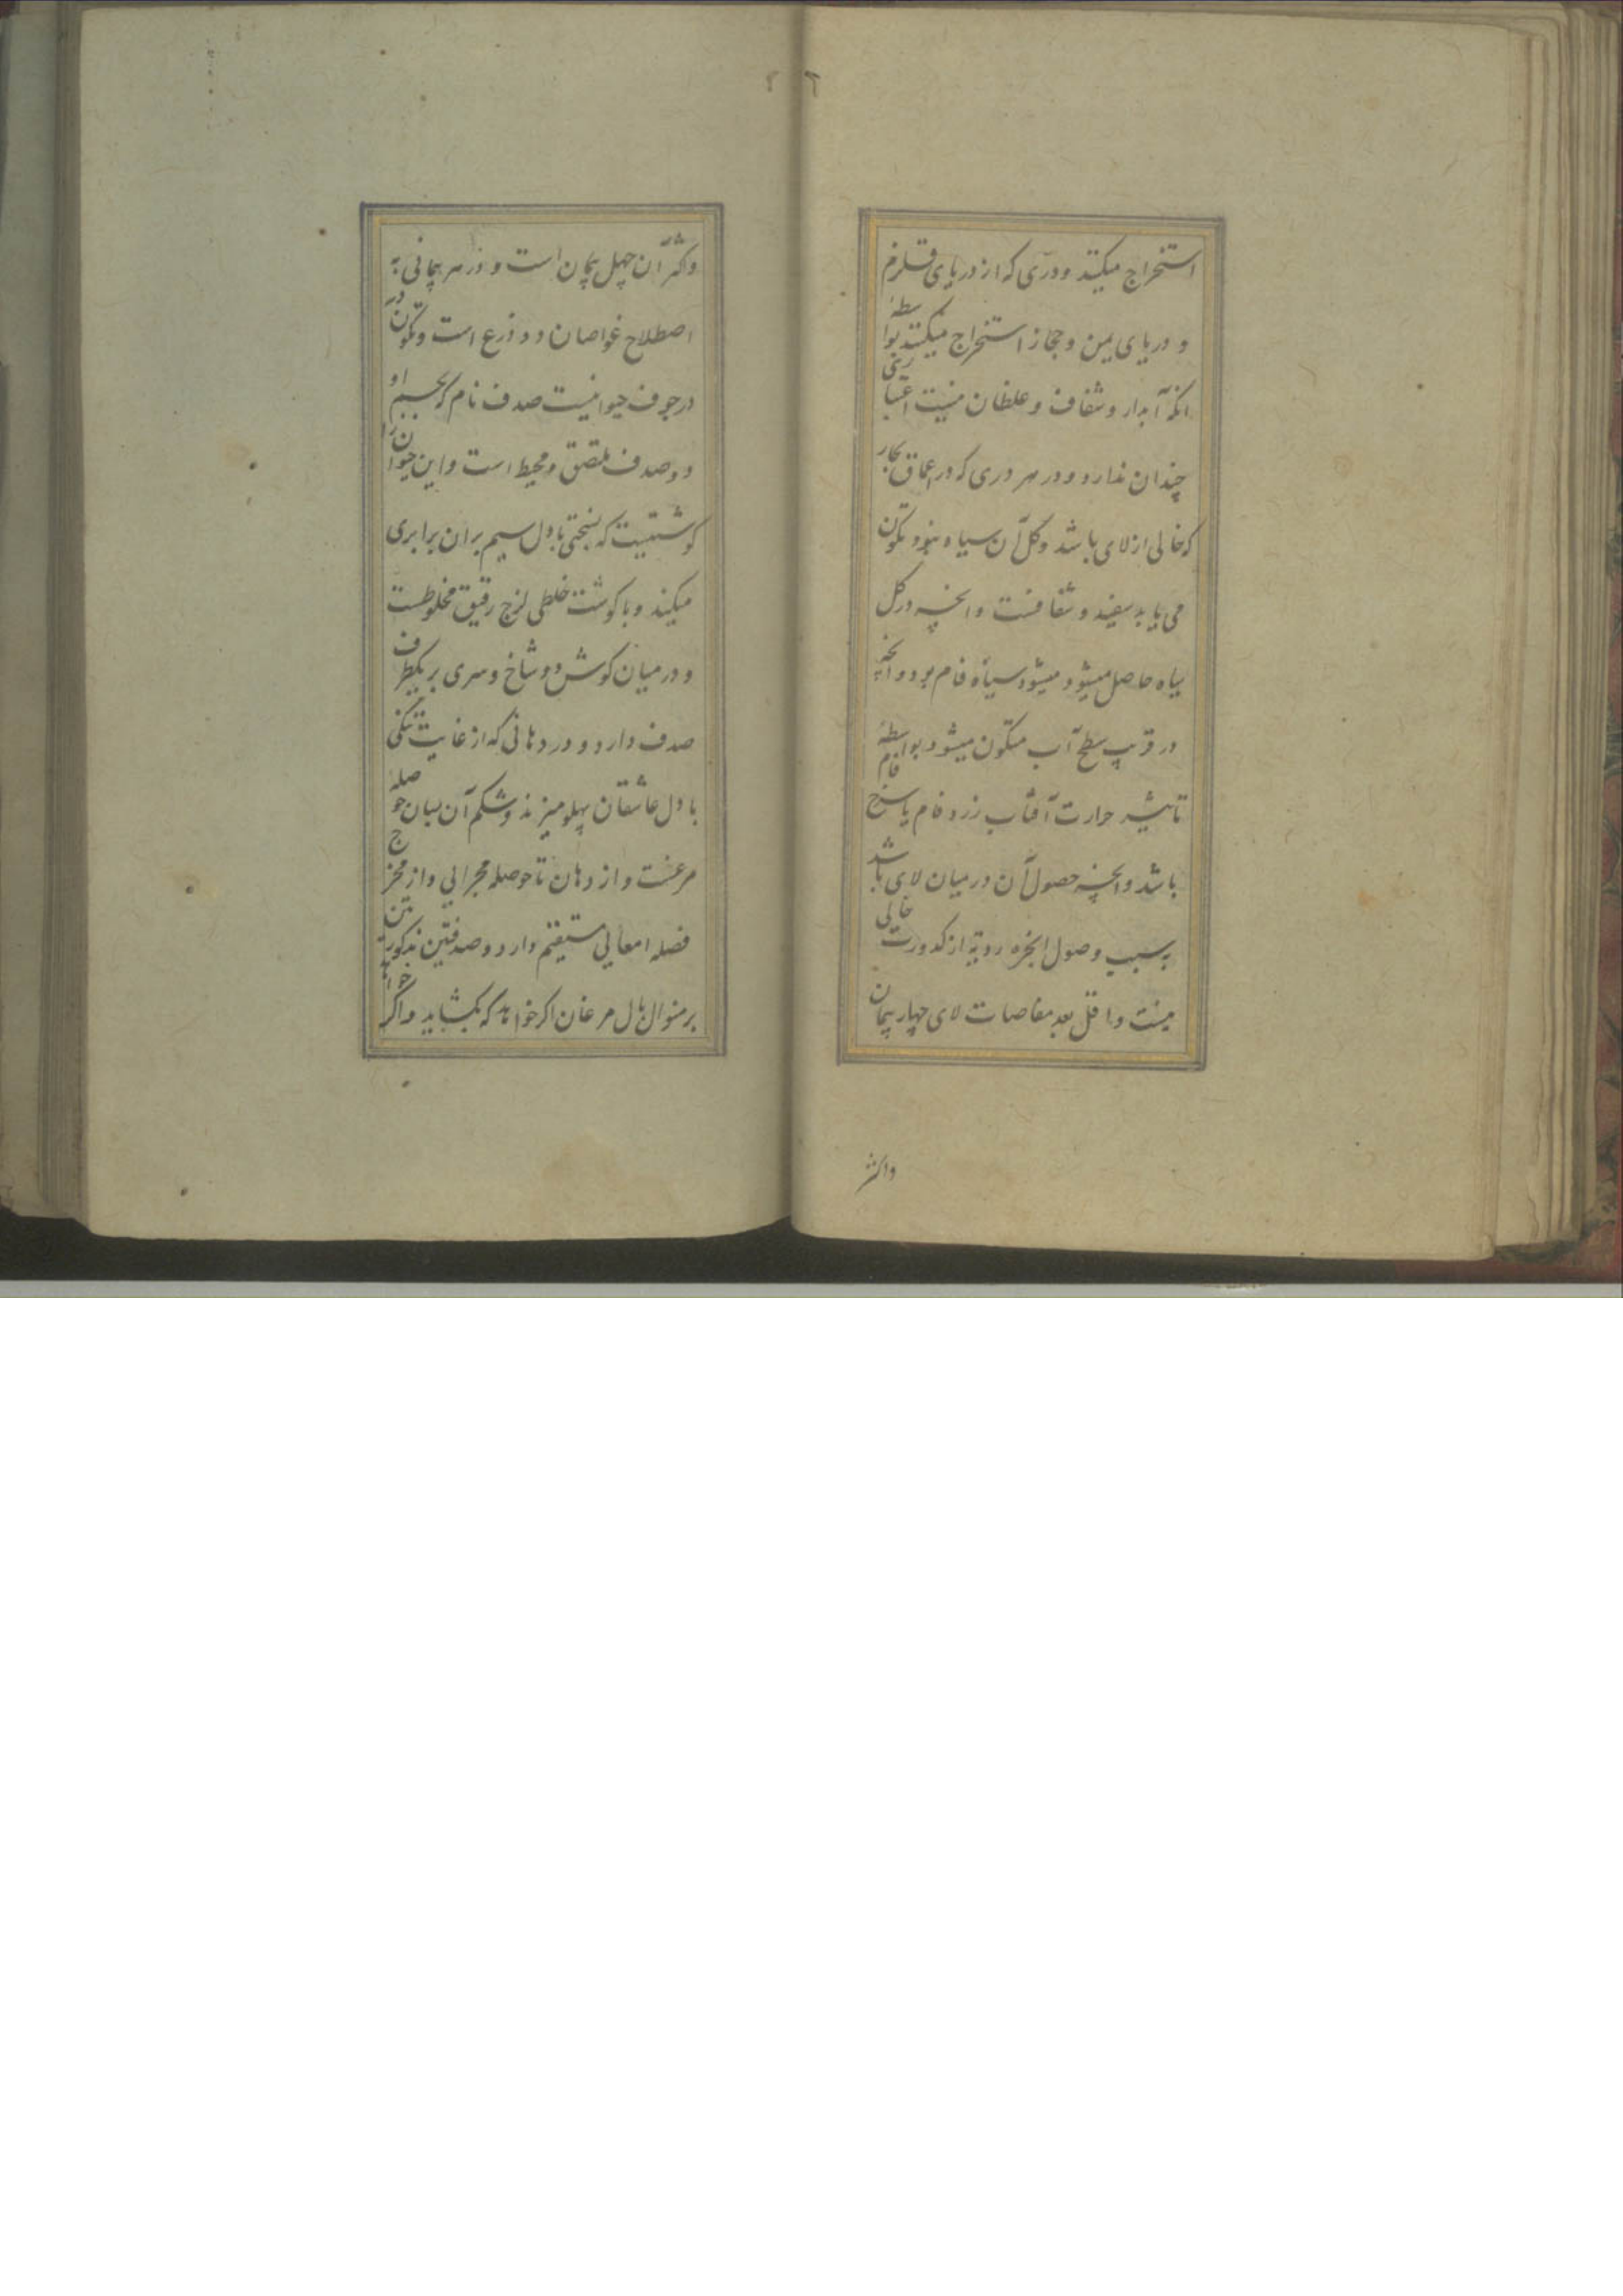 استخراج میکنند و دری که از دریای قلزم
و دریای یمن و حجاز استخراج میکنند بواسطهٔ
انکه آبدار و شفاف و غلطان نیست اعتباری
چندان ندارد و در هر دری که در اعماق بحار
که خالی از لای باشد و کل آن سیاه نبود تکون
می یابد سفید و شفافست و انچه در کل
سیاه حاصل میشود میشود سیاه فام بود و انچه
در قریب سطح آب متکون میشود بواسطهٔ
تاثیر حرارت آفتاب زرد فام یا سرخ فام
باشد و انچه حصول آن در میان لای باشد
بسبب وصول ابخره ردیه از کدورت خالی
نیست و اقل بعد مغاصات لای چهار پیمان
واکثر
واکثر آن چهل پیمان است و در هر پیمانی به
اصطلاح غواصان دو ذرع است و تکون در
در جوف حیوانیست صدف نام که بجسم او
دو صدف ملتصق و محیط است و این حیوان را
کوشتیست که بسختی با دل سیم بران برابری
میکند و با کوشت خلطی لزج رقیق مخلوطست
و در میان کوش دو شاخ و سری بر یکطرف
صدف دارد و در دهانی که از غایت تنکی
با دل عاشقان پهلو میزند و شکم آن بسان حوصله
مرغست و از دهان تا حوصله مجرائی و از مخرج
فضله امعائی مستقیم دارد و صدفتین مذکورتین
بر منوال بال مرغان اکر خواهد که بکشاید و اکر خواهد